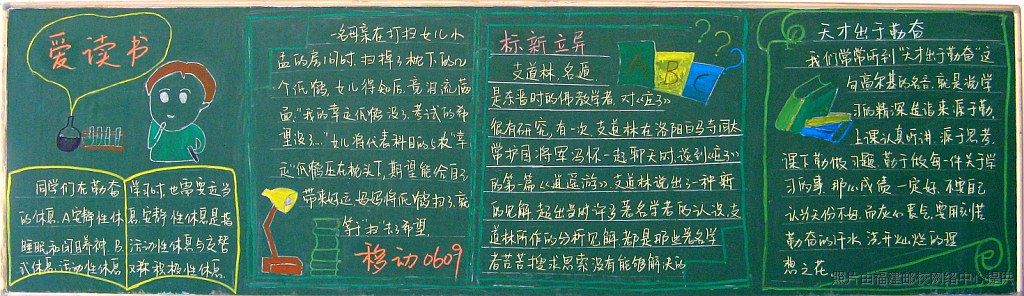 爱读书
同学们在勤奋
学习时,也需要适当
的休息.A安静性休
息.安静性休息是指
睡眠和闭目养神.B
活动性休息与交替
式休息.活动性休息
又称积极性休息.
一名母亲在打扫女儿水
晶的房间时.扫掉了枕下的几
个纸鹤.女儿得知后,竟泪流满
面."我的幸运纸鹤没了.考试的希
望没了…"女儿将代表科目的5枚"幸
运"纸鹤压在枕头下,期望能给自己
带来好运.妈妈将纸鹤扫了.竟
等于"扫"去了希望
移动0609
标新立异
A B C
支道林.名遁.
是东晋时的佛教学者.对《庄子》
很有研究.有一次.支道林在洛阳白马寺同太
常护国将军冯怀一起聊天时.谈到《庄子》
的第一篇《逍遥游》.支道林说出了一种新
的见解.超出当时许多著名学者的认识.支
道林所作的分析见解.都是那些著名学
者苦苦搜求思索没有能够解决的
天才出于勤奋
我们常常听到"天才出于勤奋"这
句高尔基的名言.就是说学
习的精深造诣来源于勤.
上课认真听讲.源于思考.
课下勤做习题.勤于做每一件关于学
习的事.那么成绩一定好.不要自
认为天份不如.而灰心丧气.要用刻苦
勤奋的汗水.浇开灿烂的理
想之花.
照片由福建邮校网络中心提供